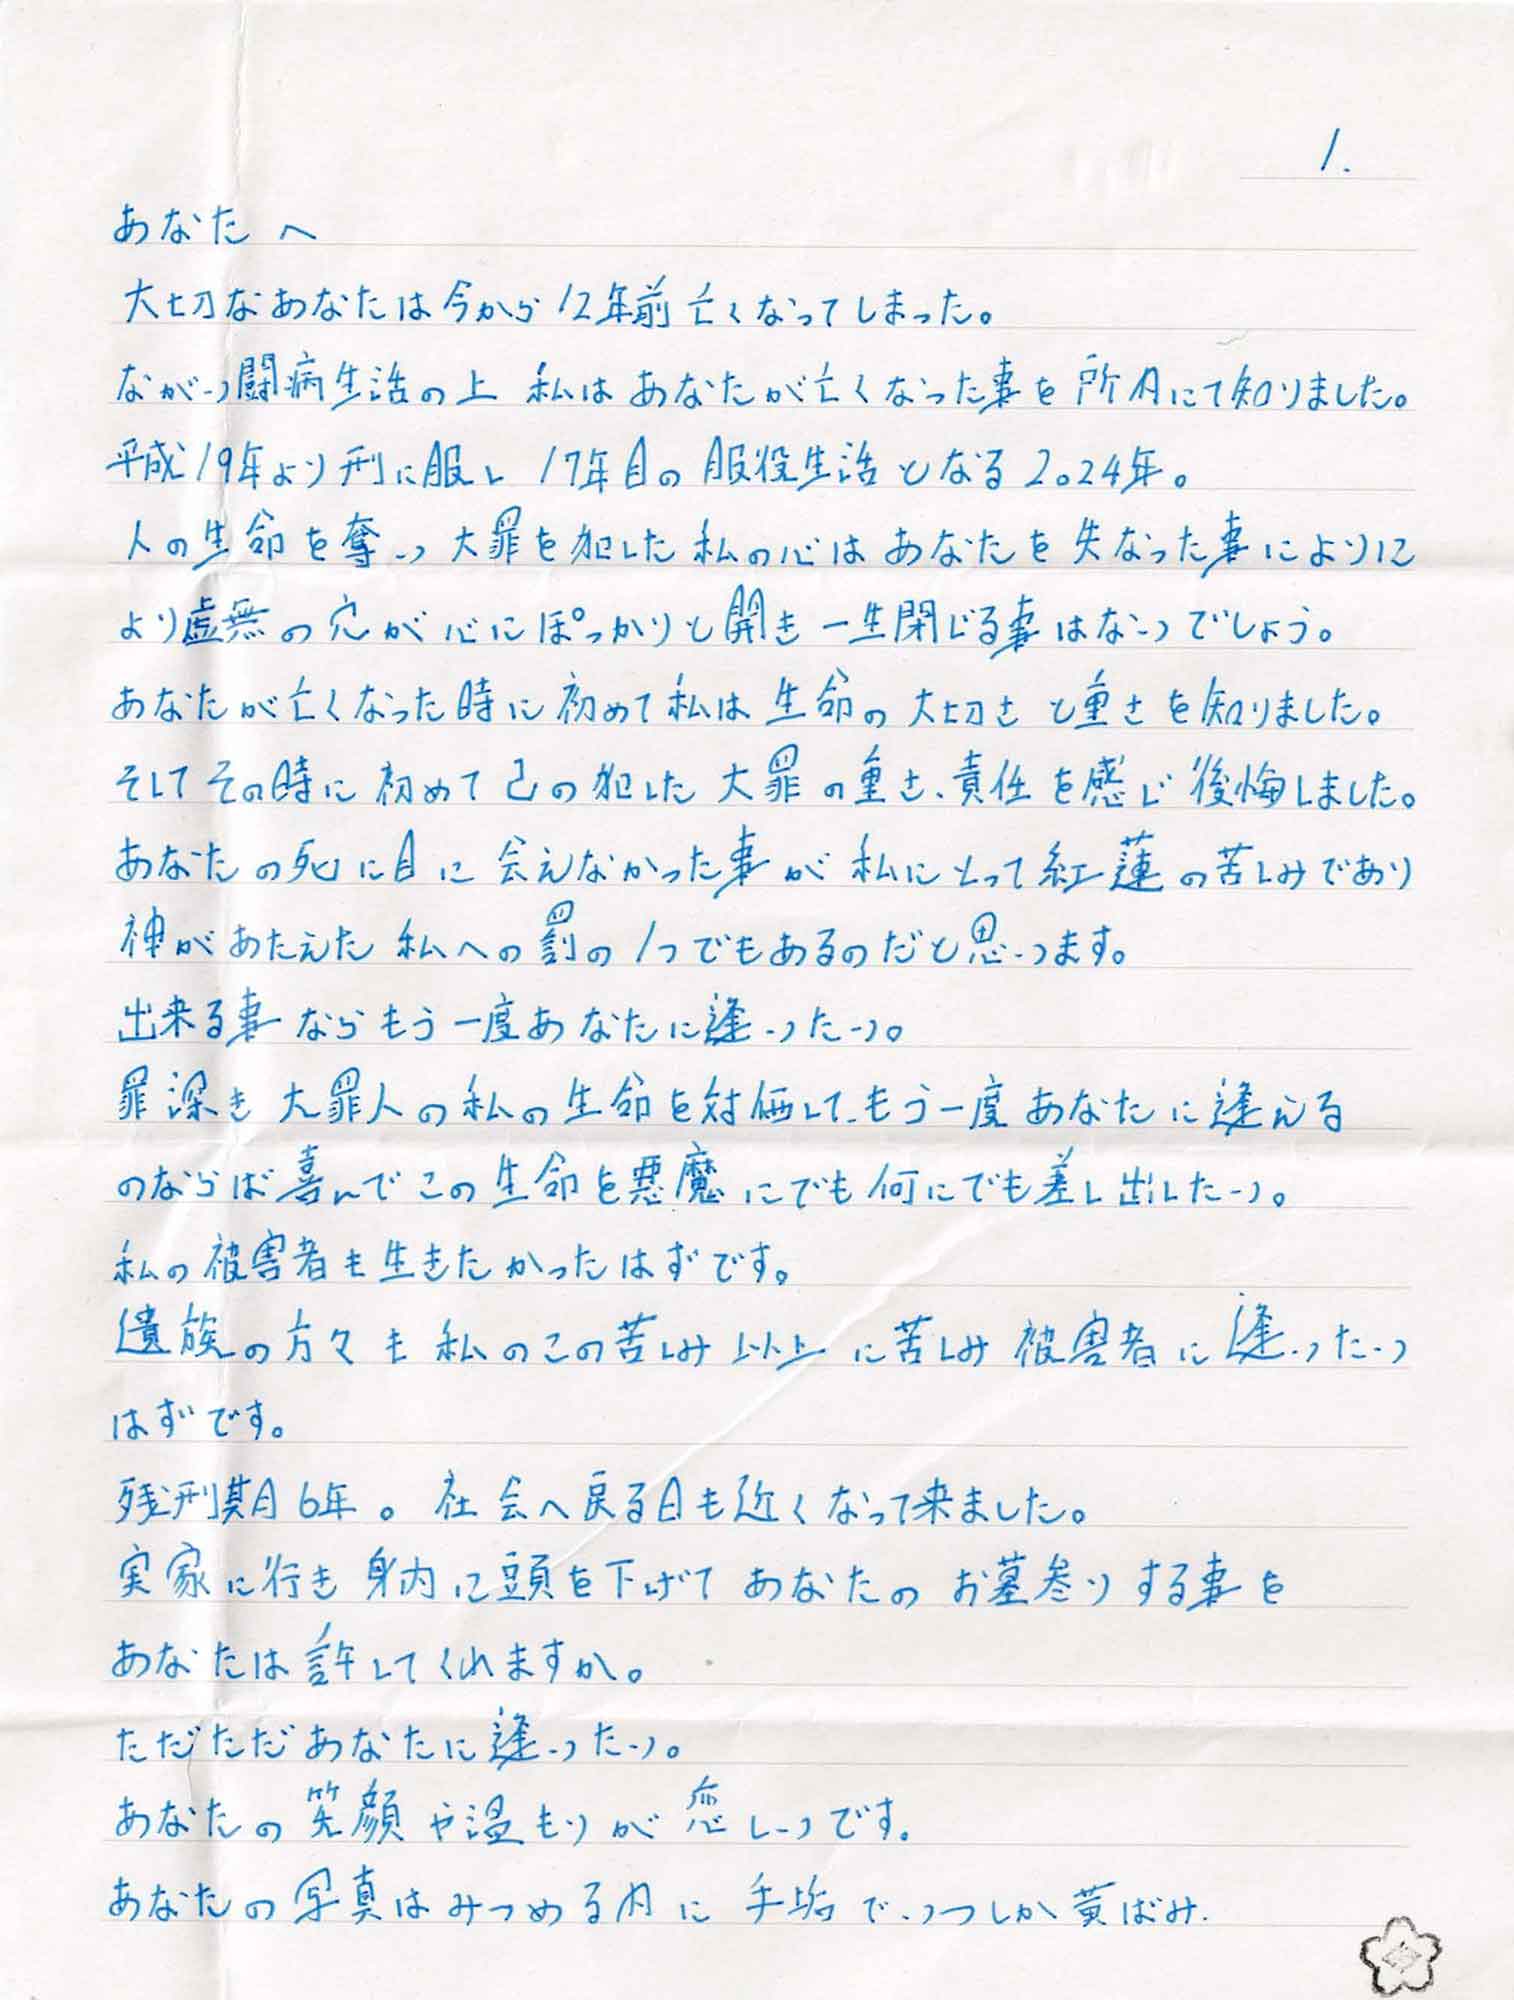 1.
あなたへ
大切なあなたは今から12年前亡くなってしまった。
ながい闘病生活の上 私はあなたが亡くなった事を所内にて知りました。
平成19年より刑に服し 17年目の服役生活となる2024年。
人の生命を奪い大罪を犯した私の心はあなたを失なった事によりに
より虚無の穴が心にぽっかりと開き一生閉じる事はないでしょう。
あなたが亡くなった時に初めて私は生命の大切さと重さを知りました。
そしてその時に初めて己の犯した大罪の重さ、責任を感じ後悔しました。
あなたの死に目に会えなかった事が私にとって紅蓮の苦しみであり
神があたえた私への罰の1つでもあるのだと思います。
出来る事ならもう一度あなたに逢いたい。
罪深き大罪人の私の生命を対価して、もう一度あなたに逢える
のならば喜んでこの生命を悪魔にでも何にでも差し出したい。
私の被害者も生きたかったはずです。
遺族の方々も私のこの苦しみ以上に苦しみ被害者に逢いたい
はずです。
残刑期6年。社会へ戻る日も近くなって来ました。
実家に行き身内に頭を下げてあなたのお墓参りする事を
あなたは許してくれますか。
ただただあなたに逢いたい。
あなたの笑顔や温もりが恋しいです。
あなたの写真はみつめる内に手垢でいつしか黄ばみ、